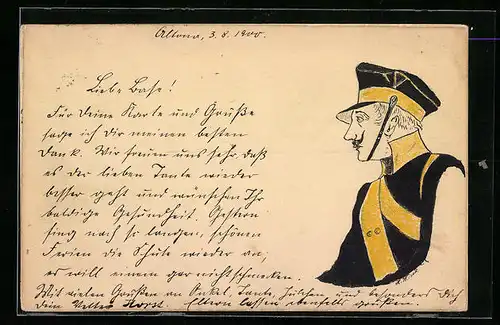 Altona, 3. 8. 1900.
Liebe Base!
Für Deine Karte und Grüße
sage ich Dir meinen besten
Dank. Wir freuen uns sehr, daß
es der lieben Tante wieder
besser geht und wünschen Ihr
baldige Gesundheit. Gestern
fing nach so langen, schönen
Ferien die Schule wieder an;
es will einem gar nicht schmecken.
Mit vielen Grüßen an Onkel, Tante, und besonders Dich
Dein Vetter Horst. Eltern lassen ebenfalls grüßen.